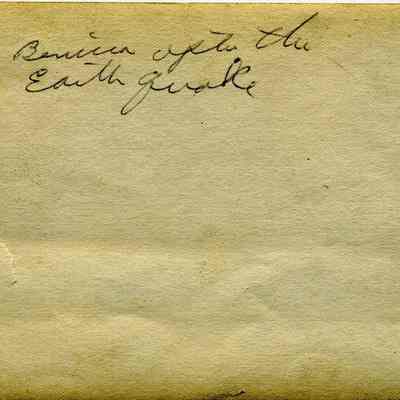 Benicia after the
Earth quake